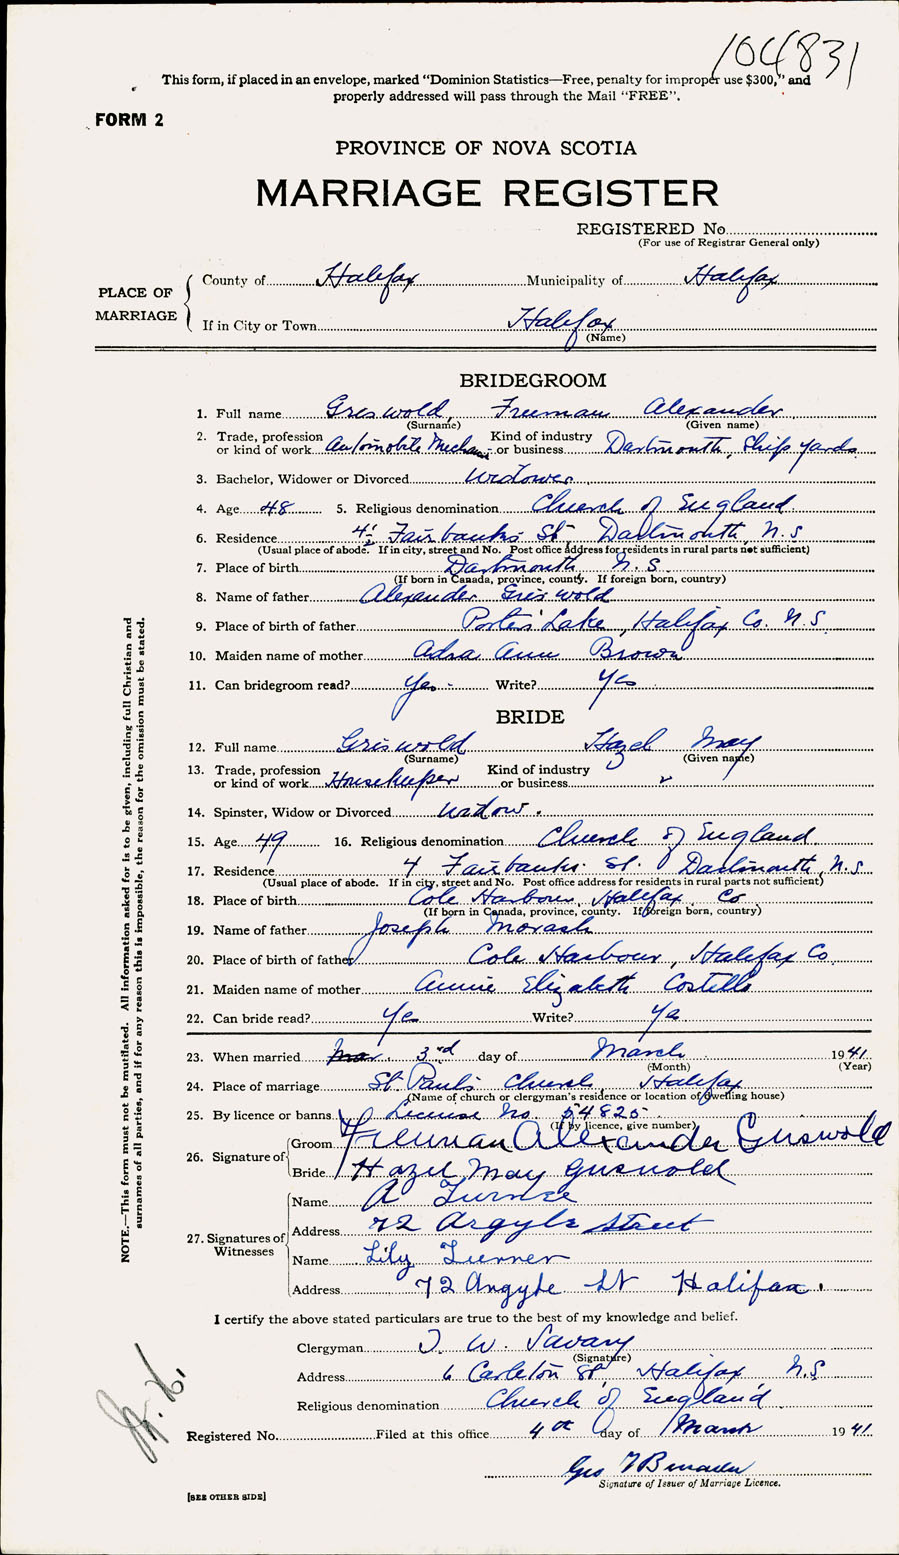 104831
This form, if placed in an envelope, marked "Dominion Statistics—Free, penalty for improper use $300," and
properly addressed will pass through the Mail "FREE".
FORM 2
PROVINCE OF NOVA SCOTIA
MARRIAGE REGISTER
REGISTERED No.
(For use of Registrar General only)
PLACE OF MARRIAGE
County of Halifax Municipality of Halifax
If in City or Town Halifax
(Name)
BRIDEGROOM
1. Full name Griswold, Freeman Alexander
(Surname) (Given name)
2. Trade, profession or kind of work Automobile Mechanic Kind of industry or business Dartmouth, Ship yards
3. Bachelor, Widower or Divorced Widower
4. Age 48 5. Religious denomination Church of England
6. Residence 4½ Fairbanks St Dartmouth, N.S
(Usual place of abode. If in city, street and No. Post office address for residents in rural parts not sufficient)
7. Place of birth Dartmouth N.S.
(If born in Canada, province, county. If foreign born, country)
8. Name of father Alexander Griswold
9. Place of birth of father Porters Lake, Halifax Co. N.S.
10. Maiden name of mother Ann Brown
11. Can bridegroom read? Yes - Write? Yes
BRIDE
12. Full name Griswold Hazel May
(Surname) (Given name)
13. Trade, profession or kind of work Housekeeper Kind of industry or business
14. Spinster, Widow or Divorced Widow.
15. Age 49 16. Religious denomination Church of England
17. Residence 4 Fairbanks St. Dartmouth, N.S
(Usual place of abode. If in city, street and No. Post office address for residents in rural parts not sufficient)
18. Place of birth Cole Harbour, Halifax Co
(If born in Canada, province, county. If foreign born, country)
19. Name of father Joseph Morash
20. Place of birth of father Cole Harbour, Halifax Co.
21. Maiden name of mother Annie Elizabeth Costello
22. Can bride read? Yes Write? Yes
23. When married Mar. 3rd day of March 1941
(Month) (Year)
24. Place of marriage St. Paul's Church, Halifax
(Name of church or clergyman's residence or location of dwelling house)
25. By licence or banns License No. 54825
(If by licence, give number)
26. Signature of
Groom Freeman Alexander Griswold
Bride Hazel May Griswold
27. Signatures of Witnesses
Name A Turner
Address 72 Argyle Street
Name Lily Turner
Address 72 Argyle St Halifax.
I certify the above stated particulars are true to the best of my knowledge and belief.
Clergyman T. W. Savary
(Signature)
Address 6 Carleton St. Halifax N.S
Religious denomination Church of England
Registered No. Filed at this office 4th day of March 1941
Geo
Signature of Issuer of Marriage Licence.
[SEE OTHER SIDE]
NOTE.—This form must not be mutilated. All information asked for is to be given, including full Christian and
surnames of all parties, and if for any reason this is impossible, the reason for the omission must be stated.